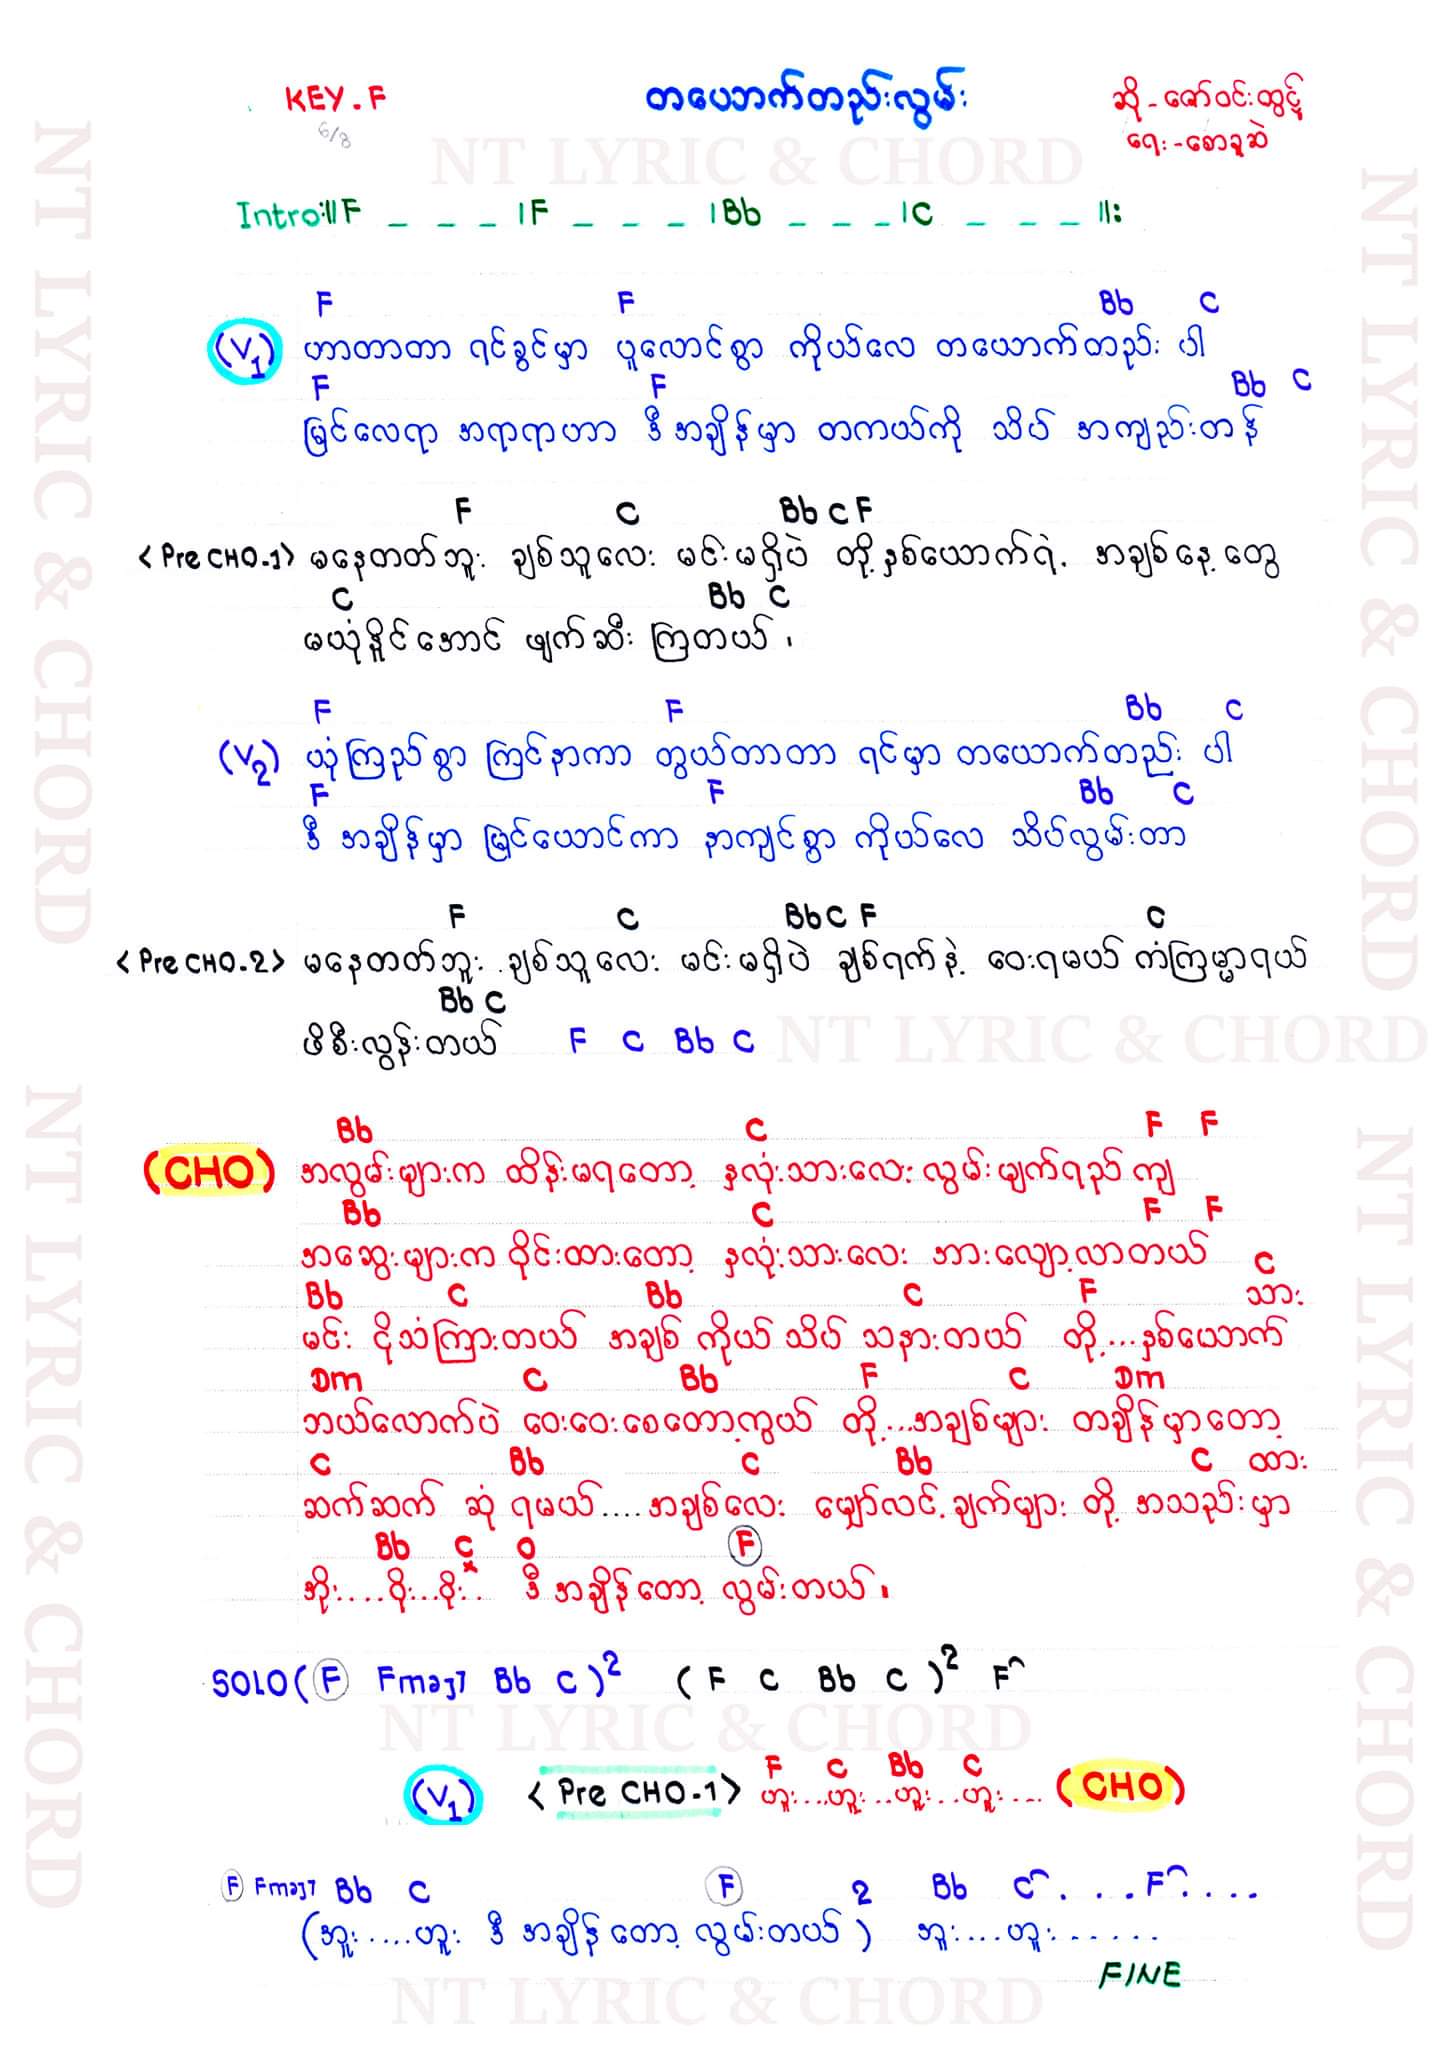 KEY.F
6/8
တယောက်တည်းလွမ်း
ဆို - ဇော်ဝင်းထွဋ်
ရေး - စောခူဆဲ
NT LYRIC & CHORD
Intro:|| F _ _ _ | F _ _ _ | Bb _ _ _ | C _ _ _ ||:
F F Bb C
(V1) ဟာတာတာ ရင်ခွင်မှာ ပူလောင်စွာ ကိုယ်လေ တယောက်တည်း ပါ
F F Bb C
မြင်လေရာ အရာရာဟာ ဒီအချိန်မှာ တကယ်ကို သိပ် အကျည်းတန်
F C Bb C F
<Pre CHO.1> မနေတတ်ဘူး ချစ်သူလေး မင်းမရှိပဲ တို့နှစ်ယောက်ရဲ့ အချစ်နေ့တွေ
C Bb C
မယုံနိုင်အောင် ဖျက်ဆီး ကြတယ်၊
F F Bb C
(V2) ယုံကြည်စွာ ကြင်နာကာ တွယ်တာတာ ရင်မှာ တယောက်တည်း ပါ
F F Bb C
ဒီ အချိန်မှာ မြင်ယောင်ကာ နာကျင်စွာ ကိုယ်လေ သိပ်လွမ်းတာ
F C Bb C F C
<Pre CHO.2> မနေတတ်ဘူး ချစ်သူလေး မင်းမရှိပဲ ချစ်ရက်နဲ့ ဝေးရမယ် ကံကြမ္မာရယ်
Bb C
ဖိစီးလွန်းတယ် F C Bb C
NT LYRIC & CHORD
Bb C F F
(CHO) အလွမ်းများက ထိန်းမရတော့ နှလုံးသားလေး လွမ်းမျက်ရည် ကျ
Bb C F F
အဆွေးများက ဝိုင်းထားတော့ နှလုံးသားလေး အားလျော့လာတယ်
Bb C Bb C F C သား
မင်း ငိုသံကြားတယ် အချစ် ကိုယ် သိပ် သနားတယ် တို့...နှစ်ယောက်
Dm C Bb F C Dm
ဘယ်လောက်ပဲ ဝေးဝေးစေတော့ကွယ် တို့...အချစ်များ တချိန်မှာတော့
C Bb C Bb C ထား
ဆက်ဆက် ဆုံ ရမယ်....အချစ်လေး မျှော်လင့်ချက်များ တို့ အသည်းမှာ
Bb C O F
အိုး....ဝိုး...ဝိုး.. ဒီအချိန်တော့ လွမ်းတယ်၊
SOLO (F Fmaj7 Bb C)2 (F C Bb C)2 F
NT LYRIC & CHORD
F C Bb C
(V1) <Pre CHO-1> ဟူး...ဟူး..ဟူး..ဟူး.... (CHO)
F Fmaj7 Bb C F 2 Bb C....F....
(အူး....ဟူး ဒီ အချိန်တော့ လွမ်းတယ်) အူး....ဟူး......
FINE
NT LYRIC & CHORD
NT LYRIC & CHORD
NT LYRIC & CHORD
NT LYRIC & CHORD
NT LYRIC & CHORD